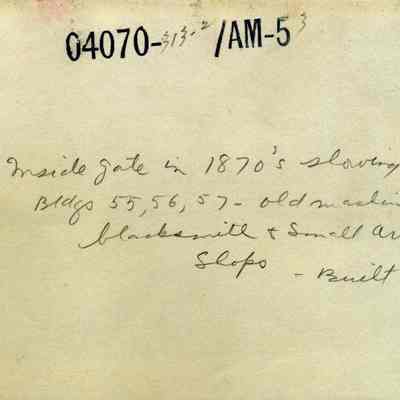 04070-313-2/AM-53
Inside gate in 1870's showing
Bldgs 55, 56, 57 - old machin
blacksmith & Small Ar
Shops - Built